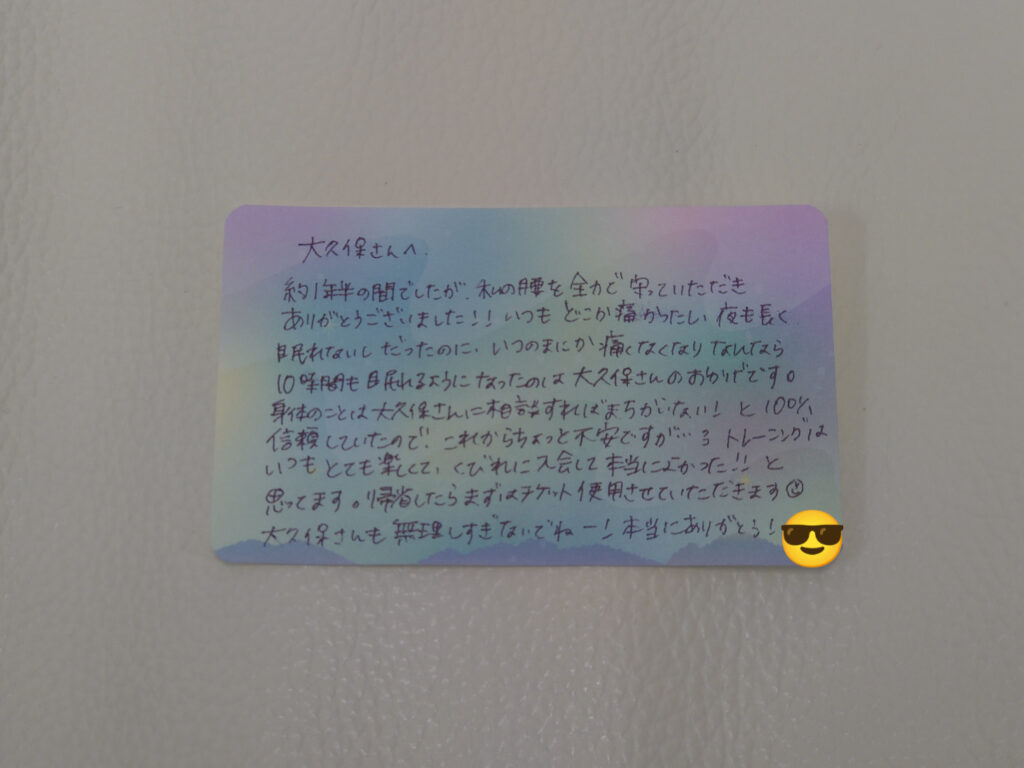 大久保さんへ.
約1年半の間でしたが、私の腰を全力で守っていただき
ありがとうございました!! いつもどこか痛かったし、夜も長く
眠れないしだったのに、いつのまにか痛くなくなりなんなら
10時間も眠れるようになったのは大久保さんのおかげです。
身体のことは大久保さんに相談すればまちがいない! と100%
信頼していたので! これからちょっと不安ですが… トレーニングは
いつもとても楽しくて、くびれに入会して本当によかった!! と
思ってます。帰省したらまずはチケット使用させていただきます
大久保さんも無理しすぎないでねー! 本当にありがとう!